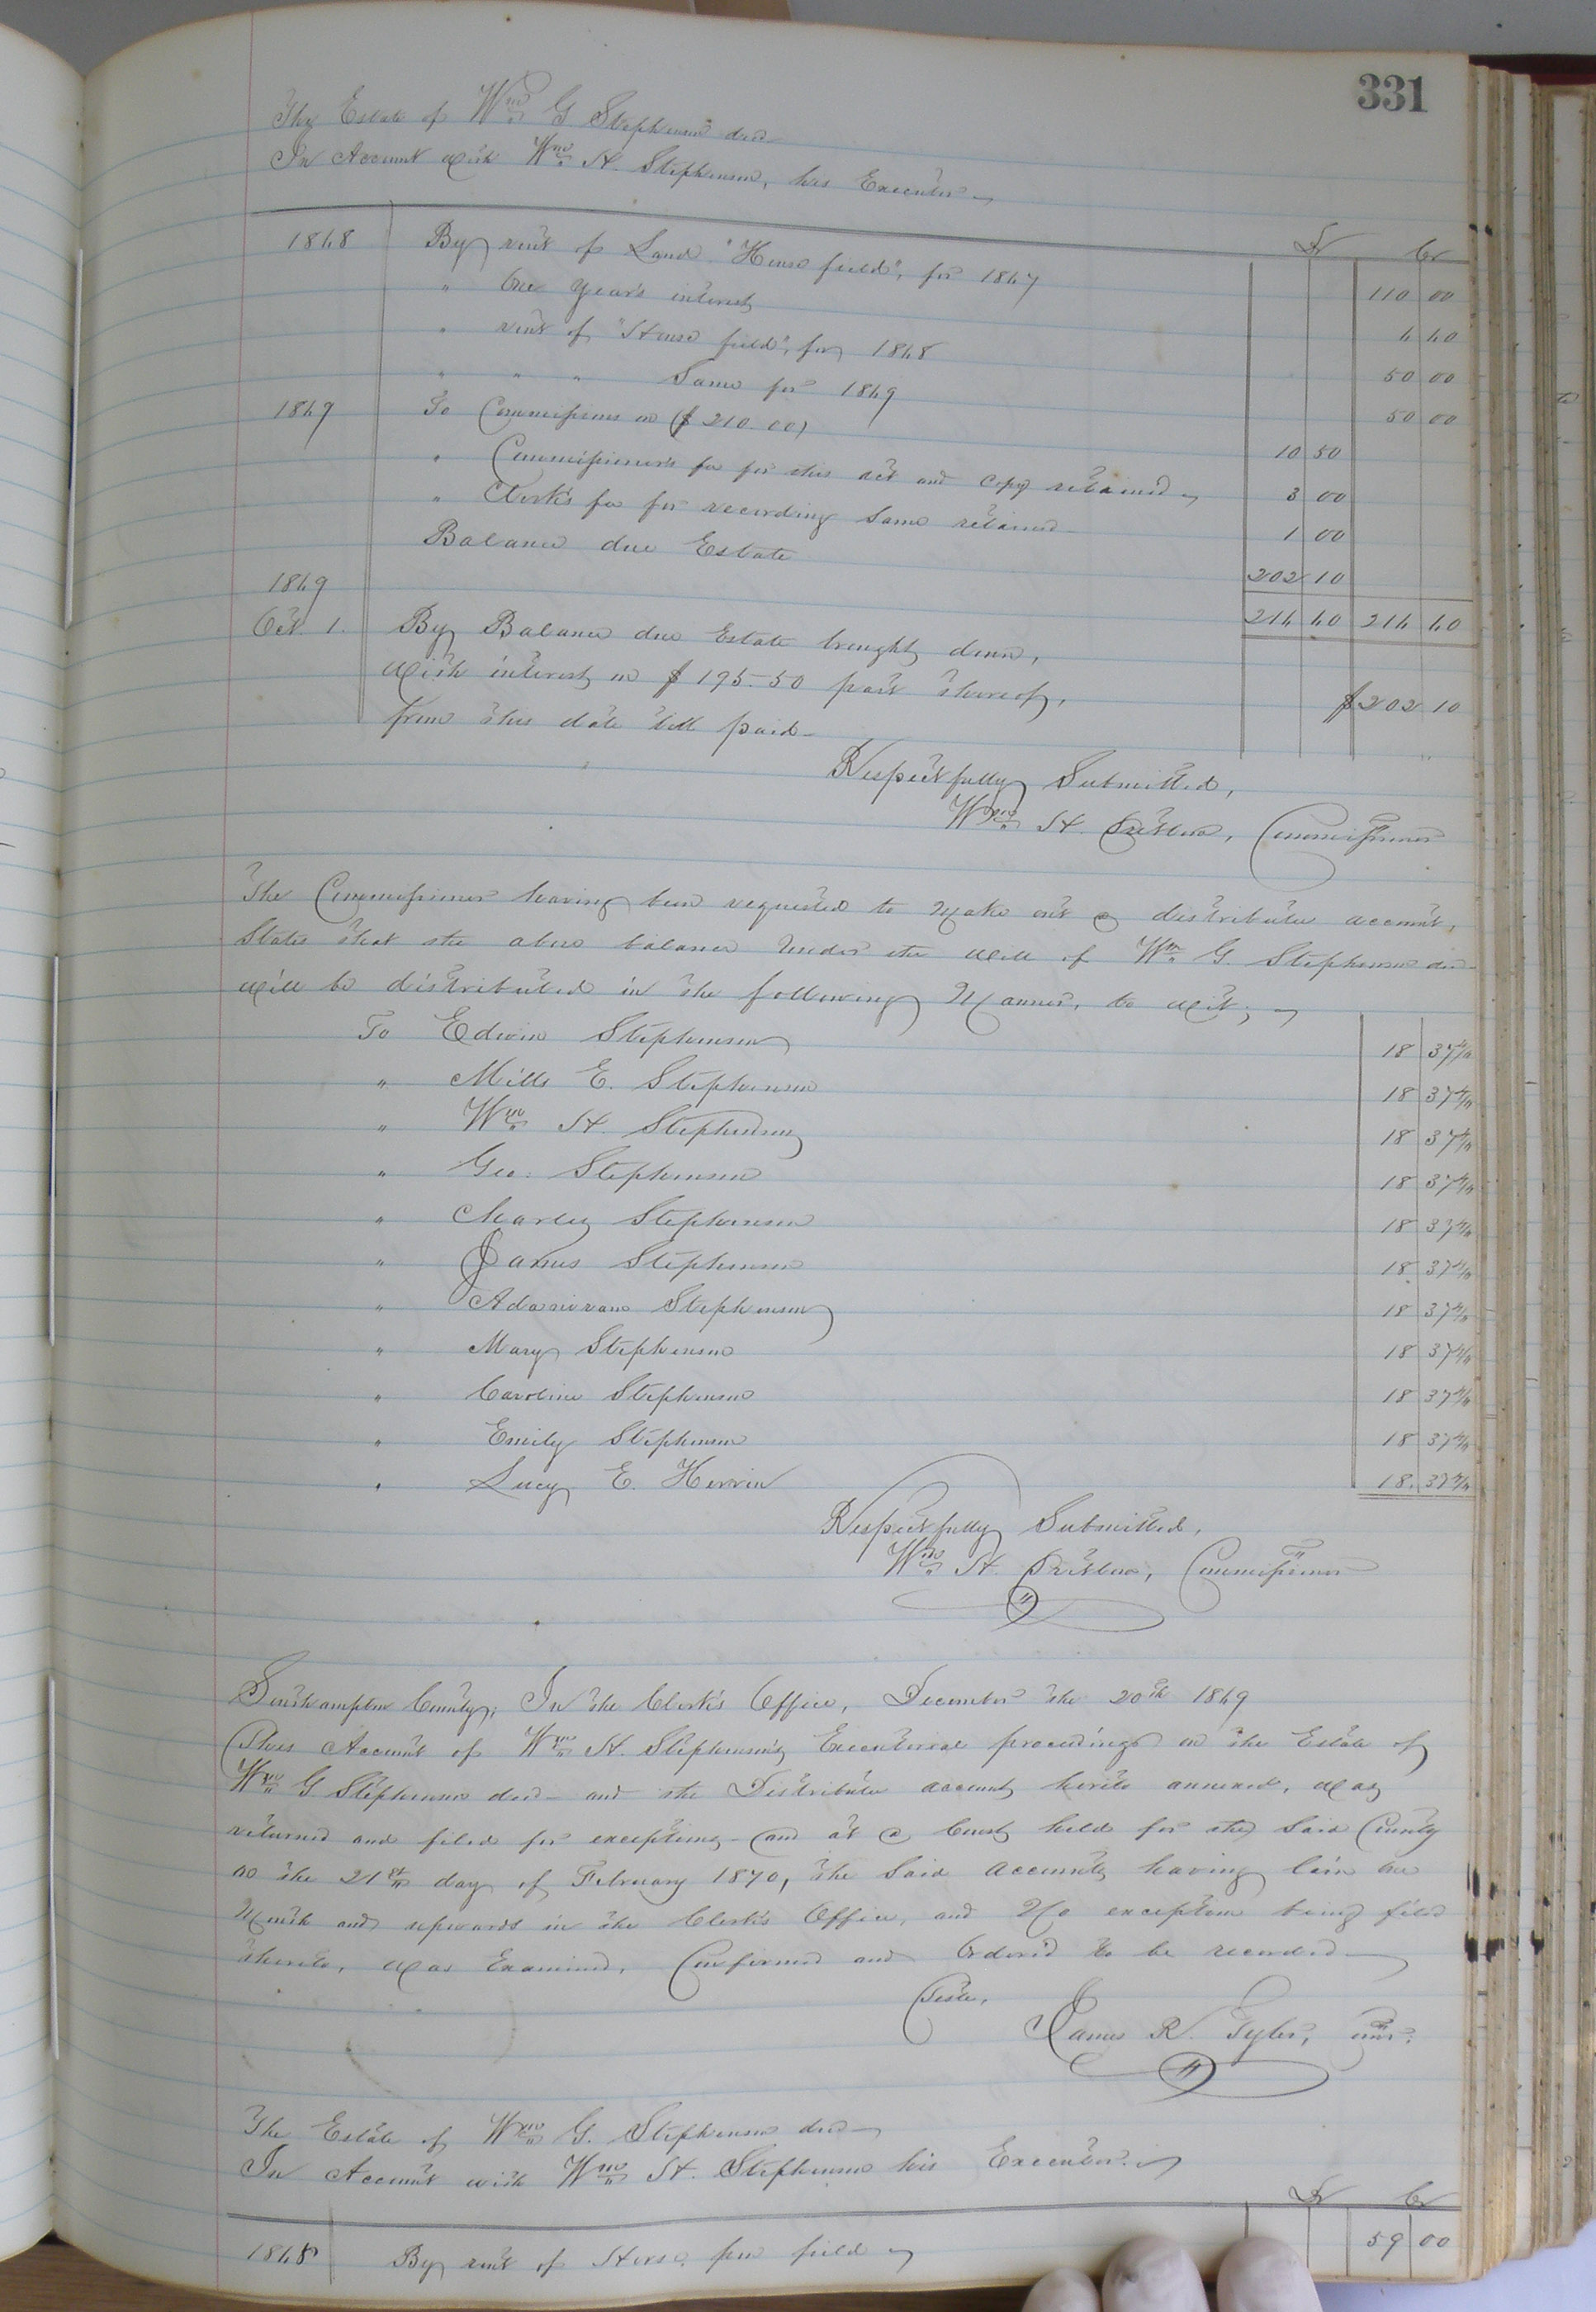 331
The Estate of Wm G Stephenson decd
In Account with Wm H. Stephenson, his Executor
Dr Cr
1868 By rent of Land "House field", for 1867 110 00
" One Year's interest 6 60
" rent of "House field", for 1868 50 00
" " " Same for 1869 50 00
1869 To Commissions on ($210.00) 10 50
" Commissioner's fee for this act and copy retained 3 00
" Clerk's fee for recording same retained 1 00
Balance due Estate 202 10
216 60 216 60
1869
Oct. 1. By Balance due Estate brought down,
with interest on $195.50 part thereof,
from this date till paid $202 10
Respectfully Submitted,
Wm H. Pretlow, Commissioner
The Commissioner having been requested to make out a distributive account,
States that the above balance under the will of Wm G. Stephenson decd
will be distributed in the following Manner, to wit;
To Edwin Stephenson 18 37 4/11
" Mills E. Stephenson 18 37 4/11
" Wm H. Stephenson 18 37 4/11
" Geo: Stephenson 18 37 4/11
" Charley Stephenson 18 37 4/11
" James Stephenson 18 37 4/11
" Stephenson 18 37 4/11
" Mary Stephenson 18 37 4/11
" Caroline Stephenson 18 37 4/11
" Emily Stephenson 18 37 4/11
" Lucy E. Herrin 18. 37 4/11
Respectfully Submitted,
Wm H. Pretlow, Commissioner
Southampton County; In the Clerk's Office, December the 20th 1869
This Account of Wm H. Stephenson's Executorial proceedings on the Estate of
Wm G Stephenson decd and the Distributive account hereto annexed, was
returned and filed for exceptions and at a Court held for the said County
on the 21st day of February 1870, the said accounts having lain one
Month and upwards in the Clerk's Office, and No exception being filed
thereto, was Examined, Confirmed and Ordered to be recorded
Teste,
James R. Tyler,
The Estate of Wm G. Stephenson decd
In Account with Wm H. Stephenson his Executor.
Dr Cr
1868 By rent of Horse pen field 59 00